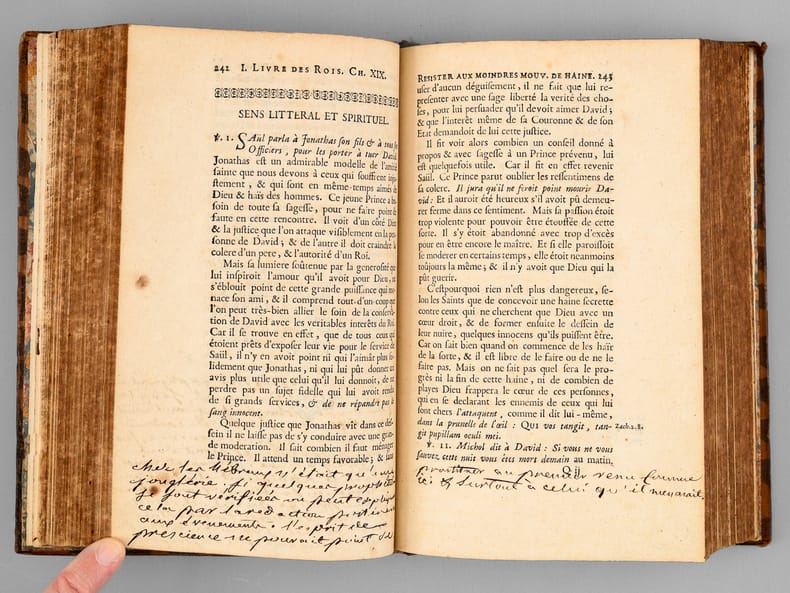 242 I. LIVRE DES ROIS. CH. XIX.
SENS LITTERAL ET SPIRITUEL.
℣. 1. SAül parla à Jonathas son fils & à tous
Officiers, pour les porter à tuer David
Jonathas est un admirable modelle de l'amitié
sainte que nous devons à ceux qui souffrent
stement, & qui sont en même-temps aimés
Dieu & haïs des hommes. Ce jeune Prince a
soin de toute sa sagesse, pour ne faire point
faute en cette rencontre. Il voit d'un côté
& la justice que l'on attaque visiblement en la
sonne de David; & de l'autre il doit craindre
colere d'un pere, & l'autorité d'un Roi.
Mais sa lumiere soûtenue par la generosité
lui inspiroit l'amour qu'il avoit pour Dieu,
s'éblouit point de cette grande puissance qui
nace son ami, & il comprend tout-d'un-coup
l'on peut très-bien allier le soin de la
tion de David avec les veritables interêts du Roi.
Car il se trouve en effet, que de tous ceux
étoient prêts d'exposer leur vie pour le service
Saül, il n'y en avoit point ni qui l'aimât plus
lidement que Jonathas, ni qui lui pût donner
avis plus utile que celui qu'il lui donnoit, de
perdre pas un sujet fidelle qui lui avoit rendu
de si grands services, & de ne répandre pas
sang innocent.
Quelque justice que Jonathas vît dans ce
sein il ne laisse pas de s'y conduire avec une
de moderation. Il sait combien il faut ménager
le Prince. Il attend un temps favorable; &
chez les Hébreux n'était qu'une
jonglérie. si quelques prophéties
se sont vérifiées on peut expliquer
cela par la rédaction postérieure
aux évènements. l'esprit de
prescience ne pouvait point se
RESISTER AUX MOINDRES MOUV. DE HAINE. 243
user d'aucun déguisement, il ne fait que lui re-
presenter avec une sage liberté la verité des cho-
ses, pour lui persuader qu'il devoit aimer David;
& que l'interêt même de sa Couronne & de son
Etat demandoit de lui cette justice.
Il fit voir alors combien un conseil donné à
propos & avec sagesse à un Prince prévenu, lui
est quelquefois utile. Car il fit en effet revenir
Saül. Ce Prince parut oublier les ressentimens de
sa colere. Il jura qu'il ne feroit point mourir Da-
vid: Et il auroit été heureux s'il avoit pû demeu-
rer ferme dans ce sentiment. Mais sa passion étoit
trop violente pour pouvoir être étouffée de cette
sorte. Il s'y étoit abandonné avec trop d'excès
pour en être encore le maître. Et si elle paroissoit
se moderer en certains temps, elle étoit neanmoins
toûjours la même; & il n'y avoit que Dieu qui la
pût guerir.
C'est pourquoi rien n'est plus dangereux, se-
lon les Saints que de concevoir une haine secrette
contre ceux qui ne cherchent que Dieu avec un
cœur droit, & de former ensuite le dessein de
leur nuire, quelques innocens qu'ils puissent être.
Car on sait bien quand on commence de les haïr
de la sorte, & il est libre de le faire ou de ne le
faire pas. Mais on ne sait pas quel sera le pro-
grès ni la fin de cette haine, ni de combien de
playes Dieu frappera le cœur de ces personnes,
qui en se declarant les ennemis de ceux qui lui
sont chers l'attaquent, comme il dit lui-même,
dans la prunelle de l'œil: QUI vos tangit, tan- Zach. 2. 8.
git pupillam oculi mei.
℣. 11. Michol dit à David: Si vous ne vous
sauvez cette nuit vous êtes mort demain au matin,
Qij
prostituer au premier venu comme
ici & surtout à celui qu'il menaçait.